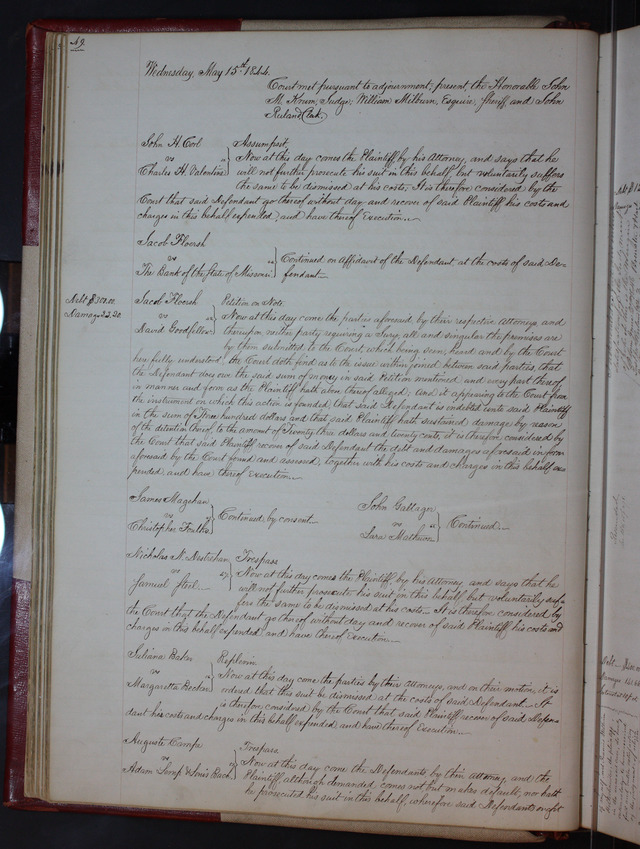 49.
Wednesday, May 15th 1844.
Court met pursuant to adjournment; present, the Honorable John
M. Krum, Judge; William Milburn, Esquire, Sheriff, and John
Ruland Clerk.
John H. Cool
vs
Charles H. Valentine
Assumpsit,
Now at this day comes the Plaintiff, by his Attorney, and says that he
will not further prosecute his suit in this behalf, but voluntarily suffers
the same to be dismissed at his costs; It is therefore considered by the
Court that said Defendant go thereof without day and recover of said Plaintiff his costs and
charges in this behalf expended, and have thereof Execution.
Jacob Floersh
vs
The Bank of the State of Missouri
Continued on Affidavit of the Defendant at the costs of said De-
fendant.
Debt $300.00
Damage 22.20.
Jacob Floersh
vs
David Goodfellow
Petition on Note.
Now at this day come the parties aforesaid by their respective Attorneys and
thereupon neither party requiring a Jury, all and singular the premises are
by them submitted to the Court, which being seen, heard and by the Court
here fully understood, the Court doth find as to the issue within joined between said parties, that
the Defendant does owe the said sum of money in said Petition mentioned and every part thereof
in manner and form as the Plaintiff hath above thereof alleged; and it appearing to the Court from
the instrument on which this action is founded, that said Defendant is indebted unto said Plaintiff
in the sum of Three hundred dollars and that said Plaintiff hath sustained damage by reason
of the detention thereof, to the amount of Twenty two dollars and twenty cents, it is therefore considered by
the Court that said Plaintiff recover of said Defendant the debt and damages aforesaid in form
aforesaid by the Court found and assessed, together with his costs and charges in this behalf, ex-
pended, and have thereof Execution.
James Magehan
vs
Christopher Foulks
Continued by consent.
John Gallagr
vs
Mathews
Continued.
Nicholas N. Destrehan
vs
Samuel Steel
Trespass
Now at this day comes the Plaintiff by his Attorney and says that he
will not further prosecute his suit in this behalf but voluntarily suf-
fers the same to be dismissed at his costs. It is therefore considered by
the Court that the Defendant go thereof without day and recover of said Plaintiff his costs and
charges in this behalf expended and have thereof Execution.
Juliana Baker
vs
Margaretta Becker
Replevin.
Now at this day come the parties by their Attorneys, and on their motion, it is
ordered that this suit be dismissed at the costs of said Defendant. It
is therefore considered by the Court that said Plaintiff recover of said Defen-
dant his costs and charges in this behalf expended, and have thereof Execution.
Auguste Camp
vs
Adam & Louis
Trespass
Now at this day come the Defendants by their Attorney and the
Plaintiff although demanded, comes not but makes default, nor hath
he prosecuted his suit in this behalf, wherefore said Defendants ought